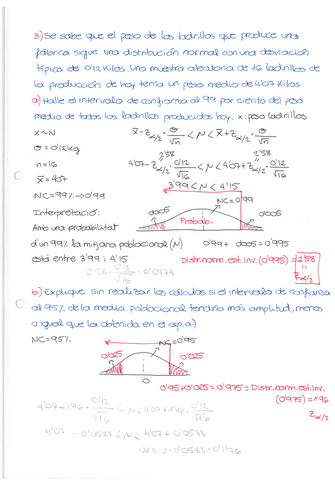 3) Se sabe que el peso de los ladrillos que produce una
fábrica sigue una distribución normal con una desviación
típica de 0'12 kilos. Una muestra aleatoria de 16 ladrillos de
la producción de hoy tenía un peso medio de 4'07 kilos
a) Halle el intervalo de confianza al 99 por ciento del peso
medio de todos los ladrillos producidos hoy. x: peso ladrillos
x~N
σ=0'12kg
n=16
x̄=4'07
NC=99% → 0'99
x̄ - Zα/2 · σ/√n < μ < x̄ + Zα/2 · σ/√n
2'58 2'58
4'07 - Zα/2 · 0'12/√16 < μ < 4'07 + Zα/2 · 0'12/√16
3'99 < μ < 4'15
NC=0'99
Interpretació:
Amb una probabilitat
d'un 99% la mitjana poblacional (μ)
està entre 3'99 i 4'15
0'005 Probabo. 0'005
0'99 + 0'005 = 0'995
Distr.norm.est.inv. (0'995) = 2'58
Zα/2
2'58 · 0'12/√16 = 0'0774
b) Explique sin realizar los cálculos si el intervalo de confianza
al 95% de la media poblacional tendría más amplitud, menos
o igual que la obtenida en el ap.a)
NC=95%
NC=0'95
0'025 0'025
0
0'95+0'025=0'975 = Distr.norm.est.inv.
(0'975)=1'96
Zα/2
4'07 - 1'96 · 0'12/√16 < μ < 4'07 + 1'96 · 0'12/√16
4'07 - 0'0588 < μ < 4'07 + 0'0588
= 2 · 0'0588 = 0'1176